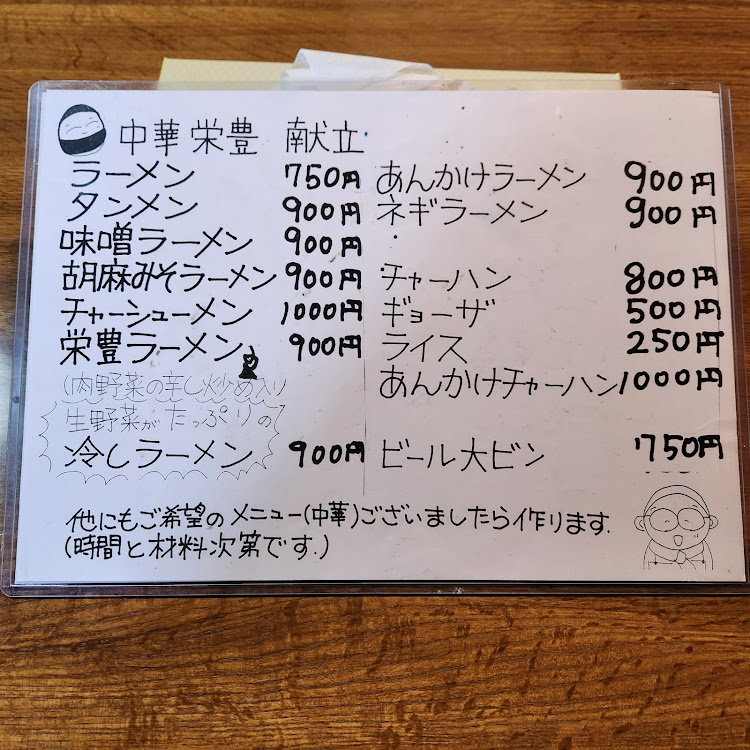 中華 栄豊 献立
ラーメン 750円
タンメン 900円
味噌ラーメン 900円
胡麻みそラーメン 900円
チャーシューメン 1000円
栄豊ラーメン 900円
(肉野菜の辛し炒め入り
生野菜がたっぷりの
冷しラーメン 900円
あんかけラーメン 900円
ネギラーメン 900円
チャーハン 800円
ギョーザ 500円
ライス 250円
あんかけチャーハン 1000円
ビール大ビン 750円
他にもご希望のメニュー(中華)ございましたら作ります.
(時間と材料次第です.)